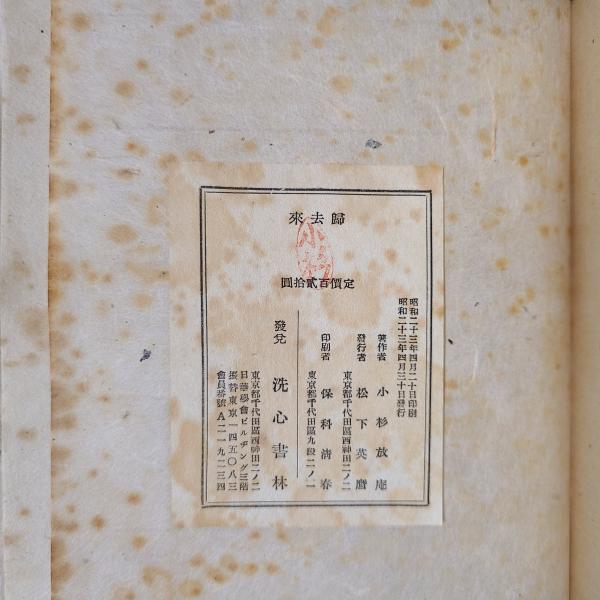 歸去來
小杉
定價百貳拾圓
昭和二十三年四月二十日印刷
昭和二十三年四月三十日發行
著作者 小杉放庵
發行者 松下英麿
東京都千代田區西神田二ノ二
印刷者 保科淸春
東京都千代田區九段二ノ一
發兌 洗心書林
東京都千代田區西神田二ノ二
日華學會ビルヂング三階
振替東京一四五〇八三
會員番號A二一九二三四